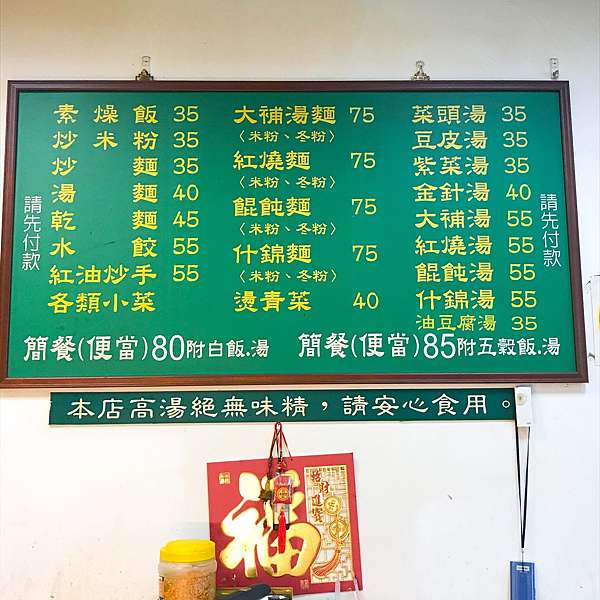 請先付款
素燥飯 35
炒米粉 35
炒麵 35
湯麵 40
乾麵 45
水餃 55
紅油炒手 55
各類小菜
大補湯麵 75
〈米粉、冬粉〉
紅燒麵 75
〈米粉、冬粉〉
餛飩麵 75
〈米粉、冬粉〉
什錦麵 75
〈米粉、冬粉〉
燙青菜 40
菜頭湯 35
豆皮湯 35
紫菜湯 35
金針湯 40
大補湯 55
紅燒湯 55
餛飩湯 55
什錦湯 55
油豆腐湯 35
請先付款
簡餐(便當)80附白飯.湯
簡餐(便當)85附五穀飯.湯
本店高湯絕無味精，請安心食用。
福
招財進寶